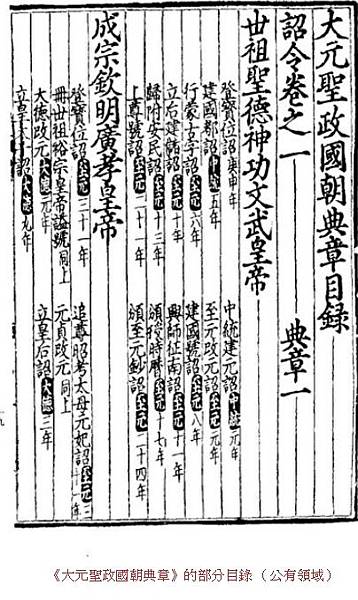 大元聖政國朝典章目録
詔令卷之一 典章一
世祖聖德神功文武皇帝
登寶位詔庚申年 中統建元詔中統元年
建國都詔中統五年 至元改元詔至元元年
行蒙古字詔至元六年 建國號詔至元八年
立后建儲詔至元十年 興師征南詔至元十一年
歸附安民詔至元十三年 頒授時曆詔至元十七年
上尊號詔至元二十一年 頒至元鈔詔至元二十四年
成宗欽明廣孝皇帝
登寶位詔至元三十一年 追尊昭考太母元妃詔至元三
冊世祖裕宗皇帝謚號同上 元貞改元同上
大德改元大德元年 立皇后詔大德三年
立皇太詔大德九年
《大元聖政國朝典章》的部分目錄（公有領域）